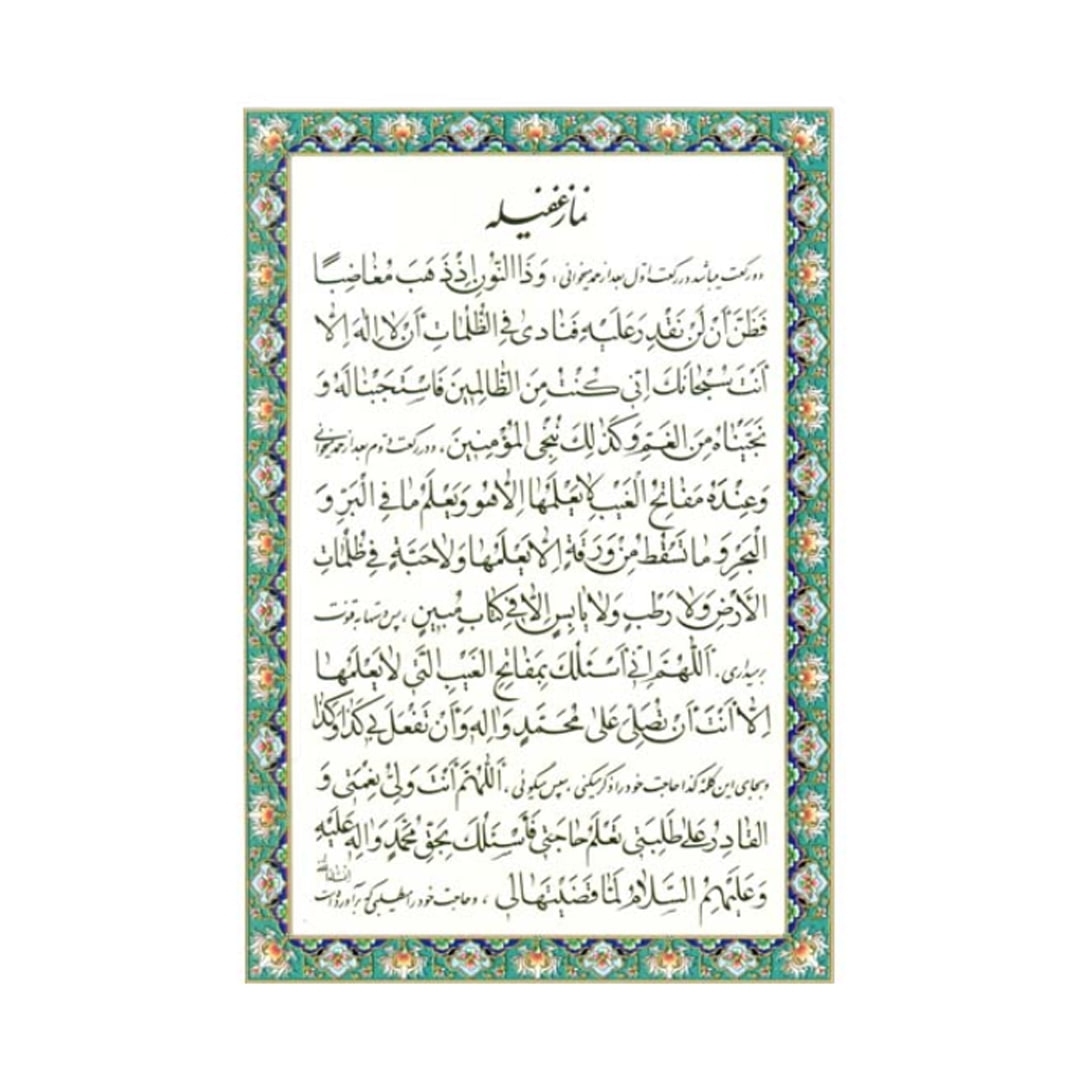 نماز غفیله
دو رکعت میباشد در رکعت اول بعد از حمد میخوانی : وَذَا النُّونِ إِذْ ذَهَبَ مُغَاضِبًا
فَظَنَّ أَنْ لَنْ نَقْدِرَ عَلَيْهِ فَنَادىٰ فِي الظُّلُمَاتِ أَنْ لَا إِلٰهَ إِلَّا
أَنْتَ سُبْحَانَكَ إِنِّي كُنْتُ مِنَ الظَّالِمِينَ فَاسْتَجَبْنَا لَهُ وَ
نَجَّيْنَاهُ مِنَ الْغَمِّ وَكَذٰلِكَ نُنْجِي الْمُؤْمِنِينَ ، و در رکعت دوم بعد از حمد میخوانی
وَعِنْدَهُ مَفَاتِحُ الْغَيْبِ لَا يَعْلَمُهَا إِلَّا هُوَ وَيَعْلَمُ مَا فِي الْبَرِّ وَ
الْبَحْرِ وَ مَا تَسْقُطُ مِنْ وَرَقَةٍ إِلَّا يَعْلَمُهَا وَلَا حَبَّةٍ فِي ظُلُمَاتِ
الْأَرْضِ وَلَا رَطْبٍ وَلَا يَابِسٍ إِلَّا فِي كِتَابٍ مُبِينٍ ، پس دستها به قنوت
برمیداری . اَللّٰهُمَّ إِنِّي أَسْئَلُكَ بِمَفَاتِحِ الْغَيْبِ الَّتِي لَا يَعْلَمُهَا
إِلَّا أَنْتَ أَنْ تُصَلِّيَ عَلىٰ مُحَمَّدٍ وَ اٰلِهِ وَ أَنْ تَفْعَلَ بِي كَذَا وَ كَذَا
و بجای این کلمه کذا حاجت خود را ذکر میکنی ، سپس میگوئی . اَللّٰهُمَّ أَنْتَ وَلِيُّ نِعْمَتِي وَ
الْقَادِرُ عَلىٰ طَلِبَتِي تَعْلَمُ حَاجَتِي فَأَسْئَلُكَ بِحَقِّ مُحَمَّدٍ وَ اٰلِهِ عَلَيْهِ
وَ عَلَيْهِمُ السَّلَامُ لَمَّا قَضَيْتَهَا لِي ، و حاجت خود را میطلبی که برآورده است انشاءالله